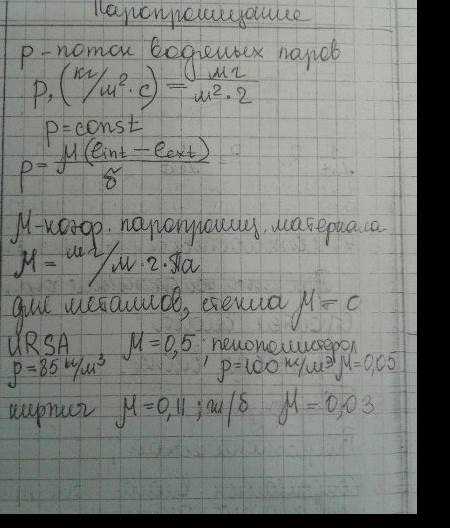 Паропроницание
p - поток водяных паров
p, (кг/м²·с) = мг/м²·ч
p = const
p = μ(eint - eext)/δ
μ - коэф. паропрониц. материала
μ = мг/м·ч·Па
для металлов, стекла μ = 0
URSA μ = 0,5; пенополистерол
p = 85 кг/м³, p = 100 кг/м³ μ = 0,05
кирпич μ = 0,11; ж/б μ = 0,03